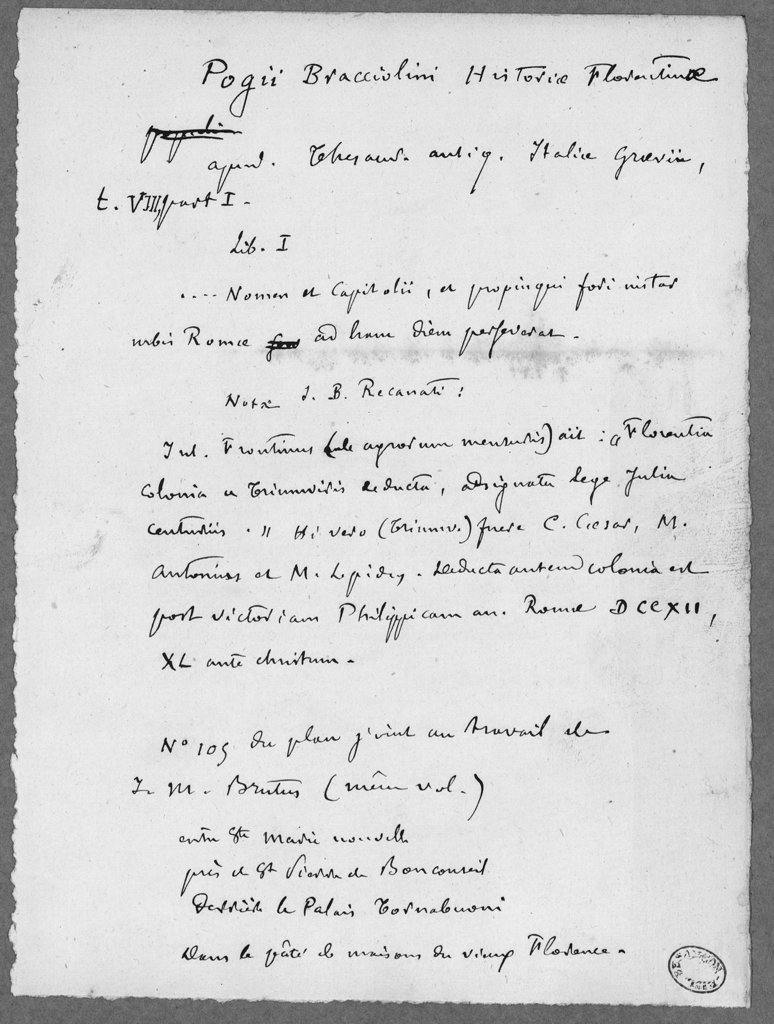 Pogii Bracciolini Historiæ Florentinæ
apud. Thesaur. antiq. Italiæ Grævii,
t. VIII, part I.
Lib. I
.... Nomen et Capitolii, et propinqui fori instar
urbis Romæ ad hanc diem perseverat.
Notæ J. B. Recanati :
Jul. Frontinus (de agrorum mensuris) ait : „Florentia
colonia a Triumviris deducta, adsignata lege Julia
centuriis. " Hi vero (Triumv.) fuere C. Cæsar, M.
Antonius et M. Lepidus. Deducta autem colonia est
post victoriam Philippicam an. Romæ DCCXII,
XL ante christum.
N° 105 du plan joint au travail de
J. M. Brutus (même vol.)
entre Ste Marie nouvelle
près de St Pierre de Bonconseil
Derrière le Palais Tornabuoni
Dans le pâté de maisons du vieux Florence.
BESANÇON